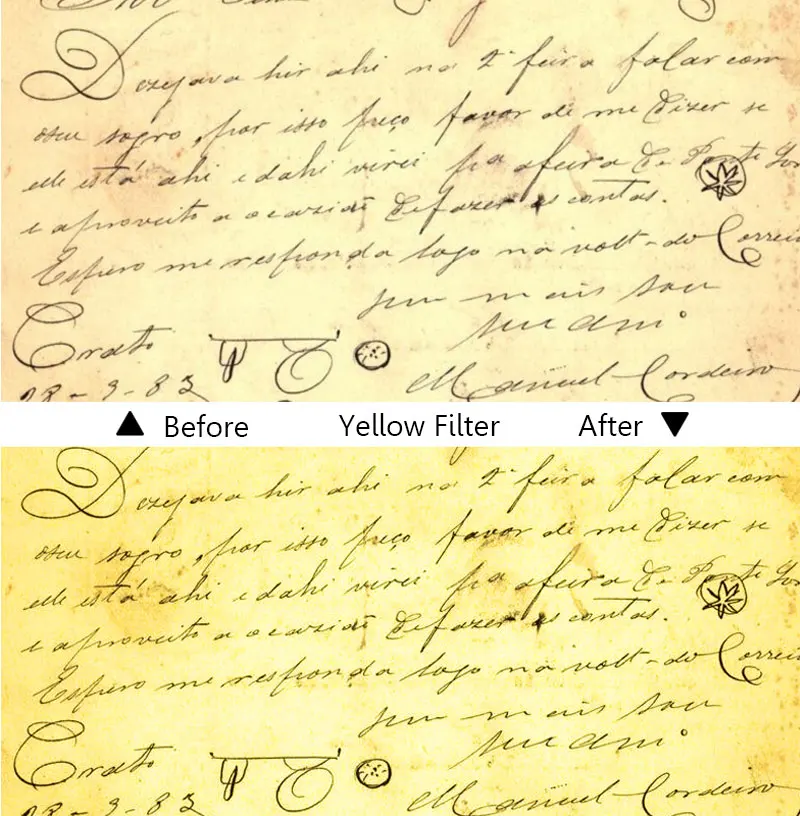 Dezejava hir ahi na 2ª feira falar com
oseu sogro, por isso peço favor de me dizer se
elle está ahi e dahi virei pª afeira de Ponte
e aproveito a ocazião defazer as contas.
Espero me responda logo na volt-do Correio
sem mais sou
seu amº
Crato
28-3-83
Manuel Cordeiro
▲ Before Yellow Filter After ▼
Dezejava hir ahi na 2ª feira falar com
oseu sogro, por isso peço favor de me dizer se
elle está ahi e dahi virei pª afeira de Ponte
e aproveito a ocazião defazer as contas.
Espero me responda logo na volt-do Correio
sem mais sou
seu amº
Crato
28-3-83
Manuel Cordeiro